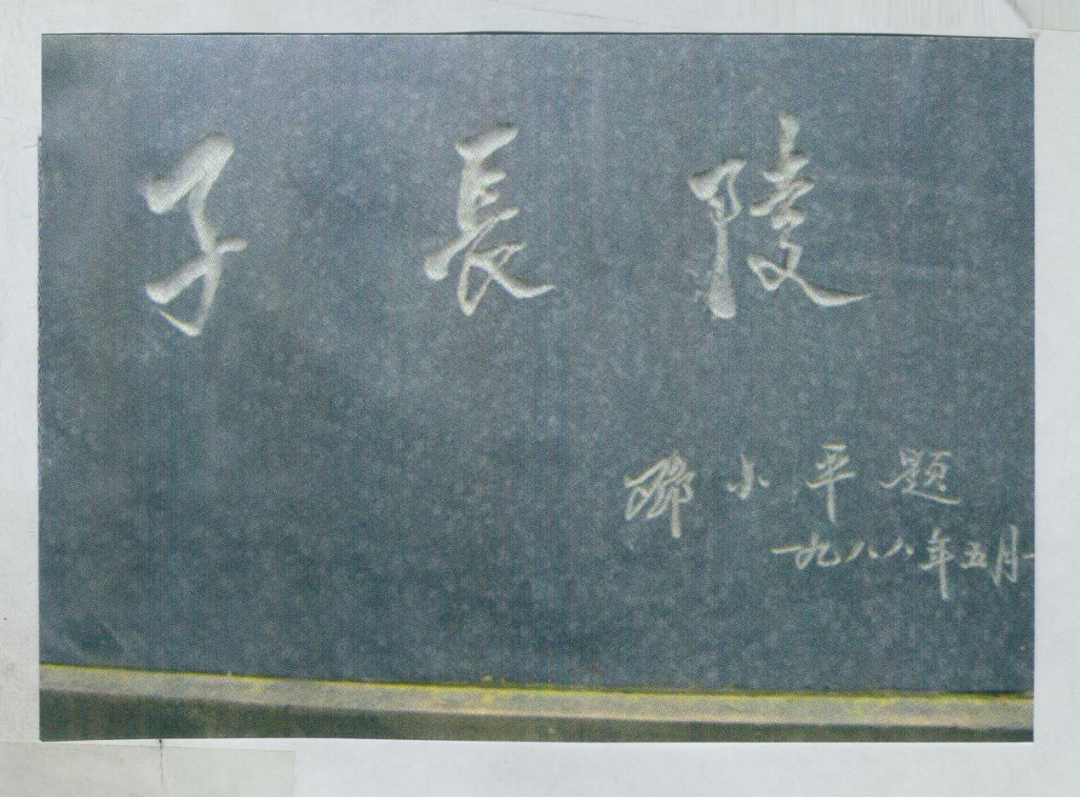 子長陵
鄧小平題
一九八八年五月一